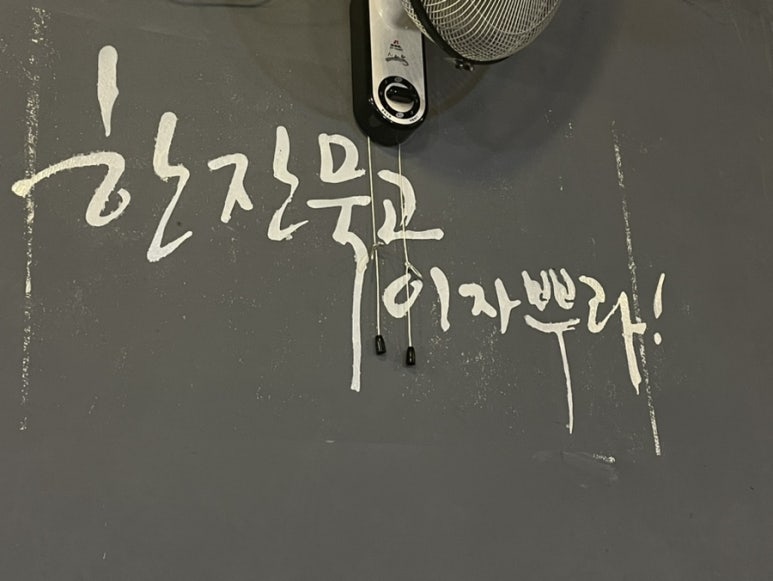 한잔묵고
이자뿌라!